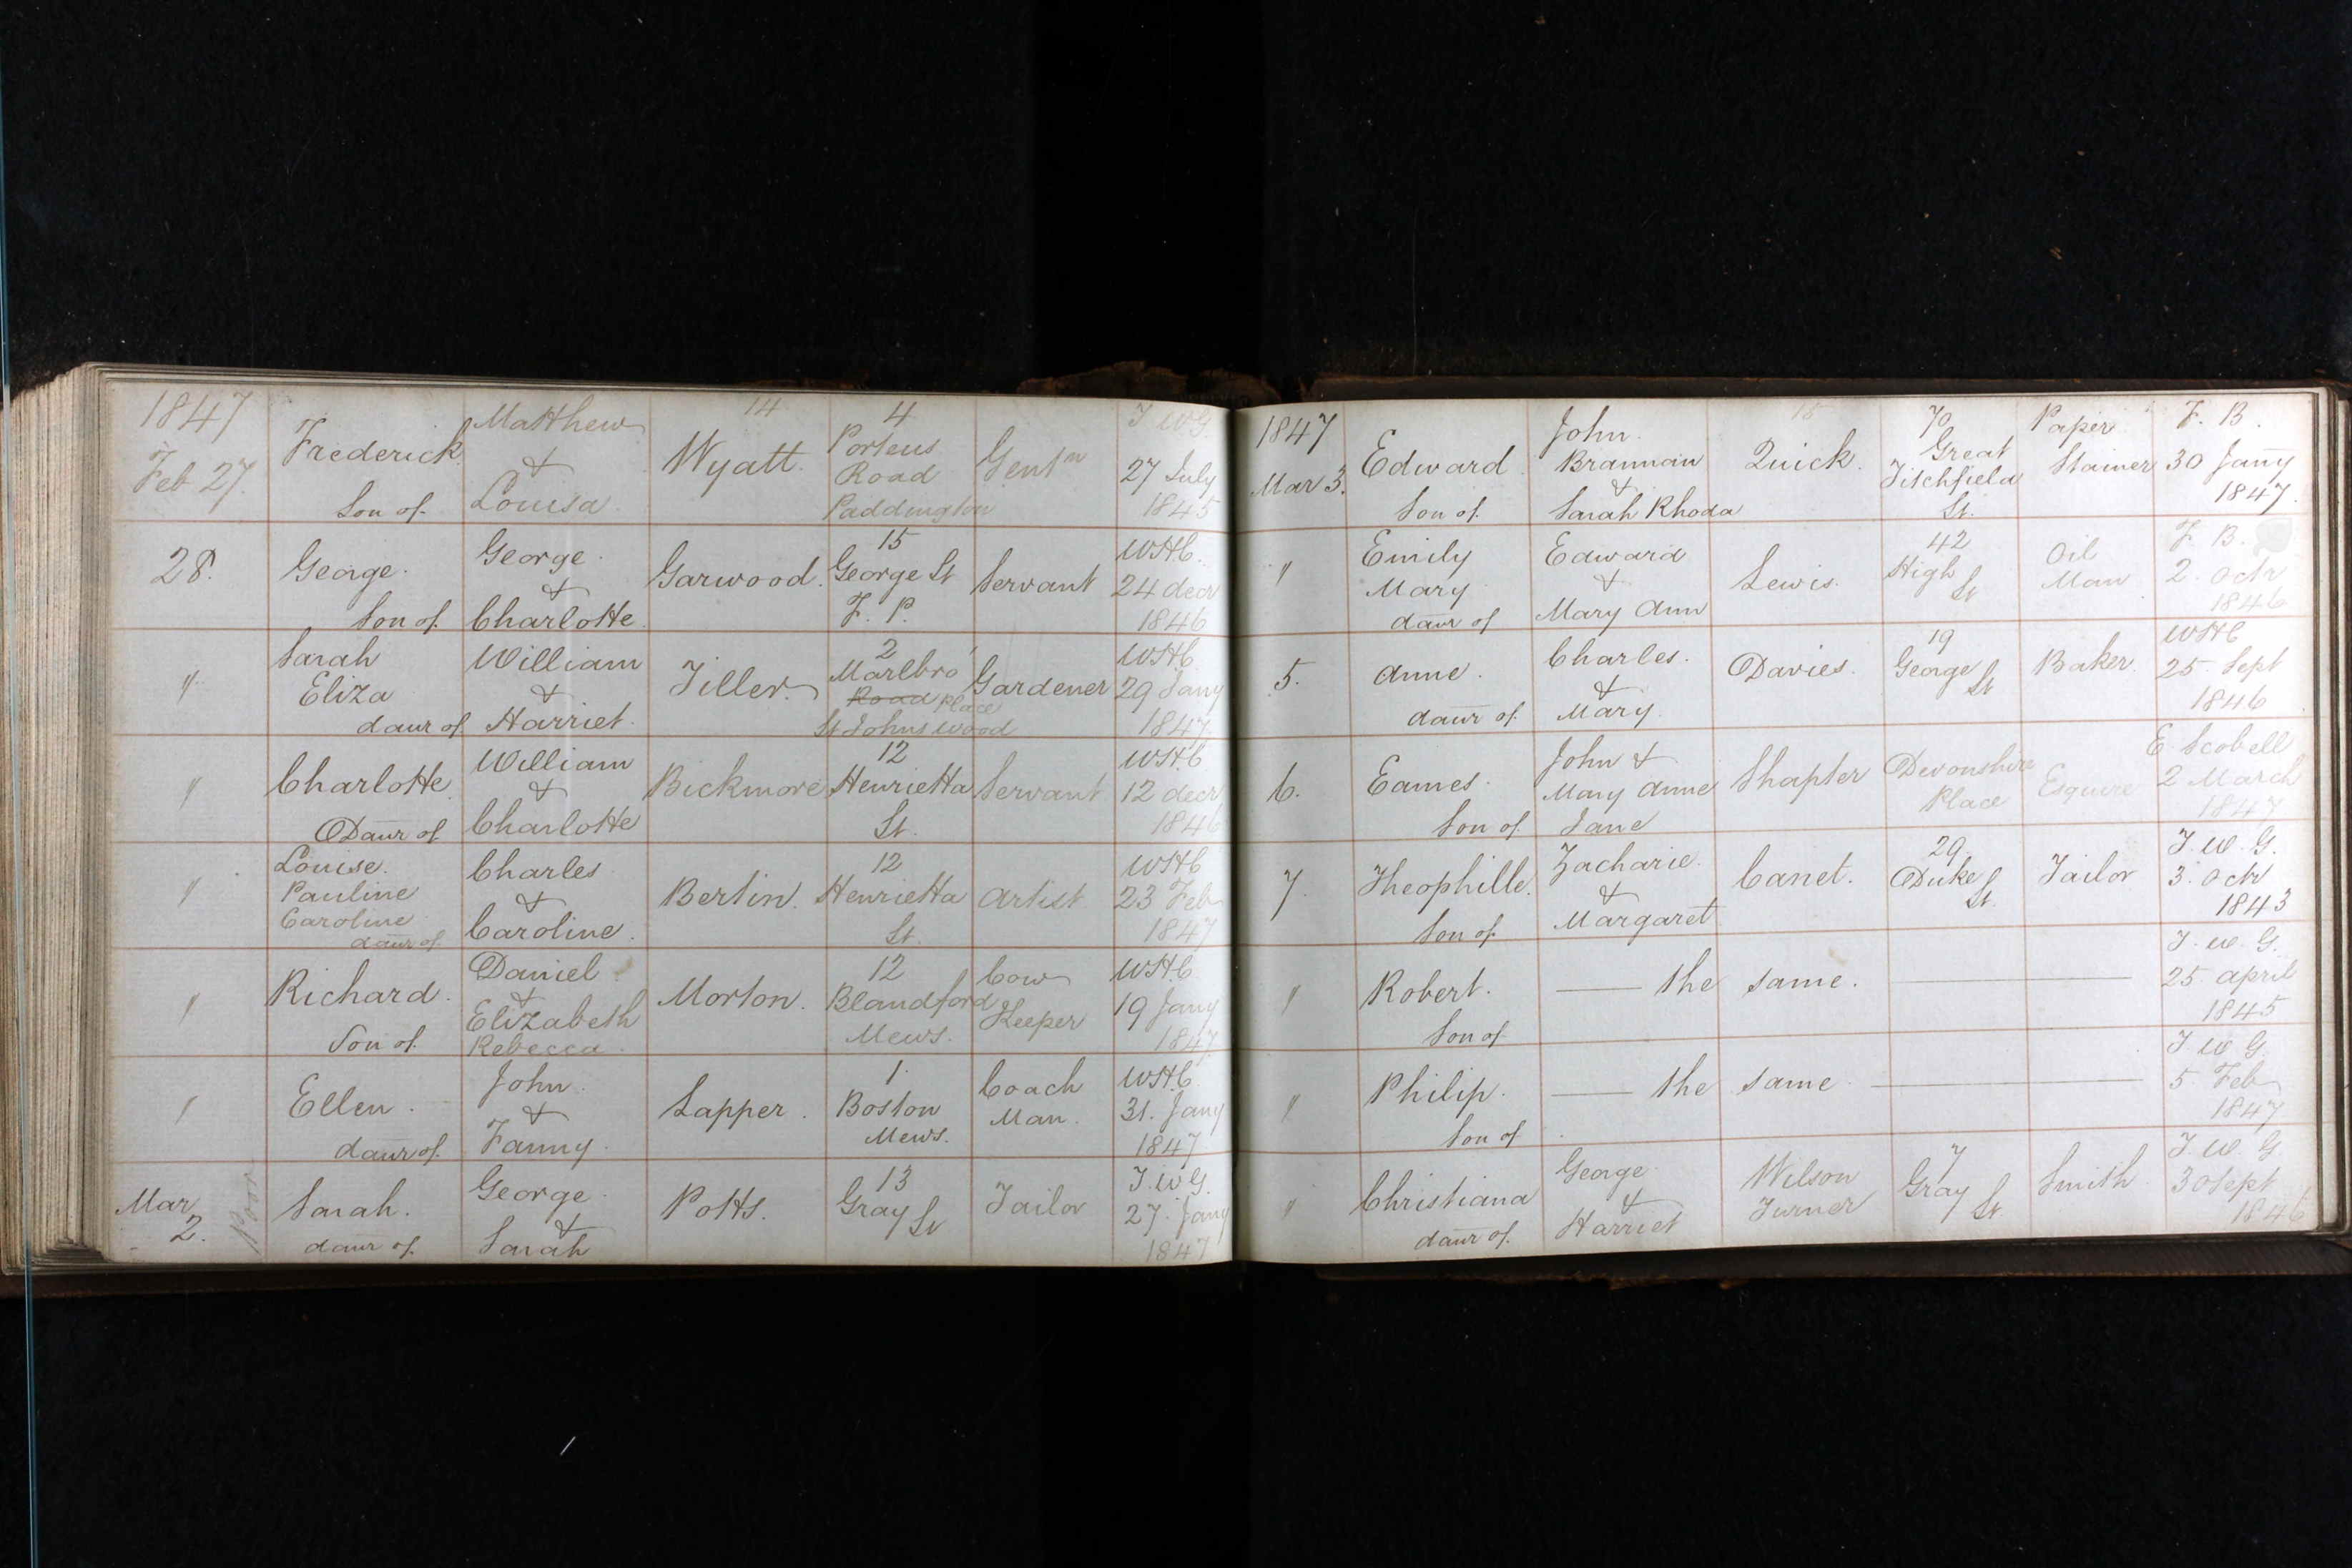 1847
14
Feb 27.
Frederick
Son of
Matthew
&
Louisa
Wyatt.
4
Porteus
Road
Paddington
Gentn
J W G
27 July
1845
28.
George.
Son of
George
&
Charlotte
Garwood.
15
George St
F. P.
Servant
WHC.
24 decr
1846
"
Sarah
Eliza
daur of
William
&
Harriet.
Tiller.
2
Marlbro'
Road Place
St Johns Wood
Gardener
WHC.
29 Jany
1847
"
Charlotte
Daur of
William
&
Charlotte
Bickmore
12
Henrietta
St.
Servant
WHC
12 decr
1846
"
Louise.
Pauline
Caroline
daur of
Charles
&
Caroline.
Bertin.
12
Henrietta
St.
Artist
WHC
23 Feb
1847
"
Richard.
Son of
Daniel
&
Elizabeth
Rebecca.
Morton.
12
Blandford
Mews.
Cow
Keeper
WHC.
19 Jany
1847
"
Ellen.
daur of
John.
&
Fanny.
Lapper.
1.
Boston
Mews.
Coach
Man.
WHC.
31. Jany
1847
Mar
2.
Poor
Sarah.
daur of
George.
&
Sarah
Potts.
13
Gray St
Tailor
J. W G.
27. Jany
1847
1847
15
Mar 3.
Edward.
Son of
John.
Brannan
&
Sarah Rhoda
Quick.
70
Great
Titchfield
St.
Paper
Stainer
F. B.
30 Jany
1847.
"
Emily
Mary
daur of
Edward
&
Mary Ann
Lewis.
42
High
St
Oil
Man
F. B.
2. Octr
1846
5.
Anne.
daur of
Charles.
&
Mary.
Davies.
19
George
St
Baker.
WHC
25. Sept
1846
6.
Eames.
Son of
John &
Mary Anne
Jane
Shapter
Devonshire
Place
Esquire
E Scobell
2 March
1847
7.
Theophille.
Son of
Zacharie.
&
Margaret
Canet.
29
Duke
St.
Tailor
J. W. G.
3. Octr
1843
"
Robert.
Son of
the same.
J. W. G.
25. April
1845
"
Philip.
Son of
the same
J. W G.
5 Feb
1847
"
Christiana
daur of
George
&
Harriet
Wilson
Turner
7
Gray
St
Smith
J. W. G
30 Sept
1846